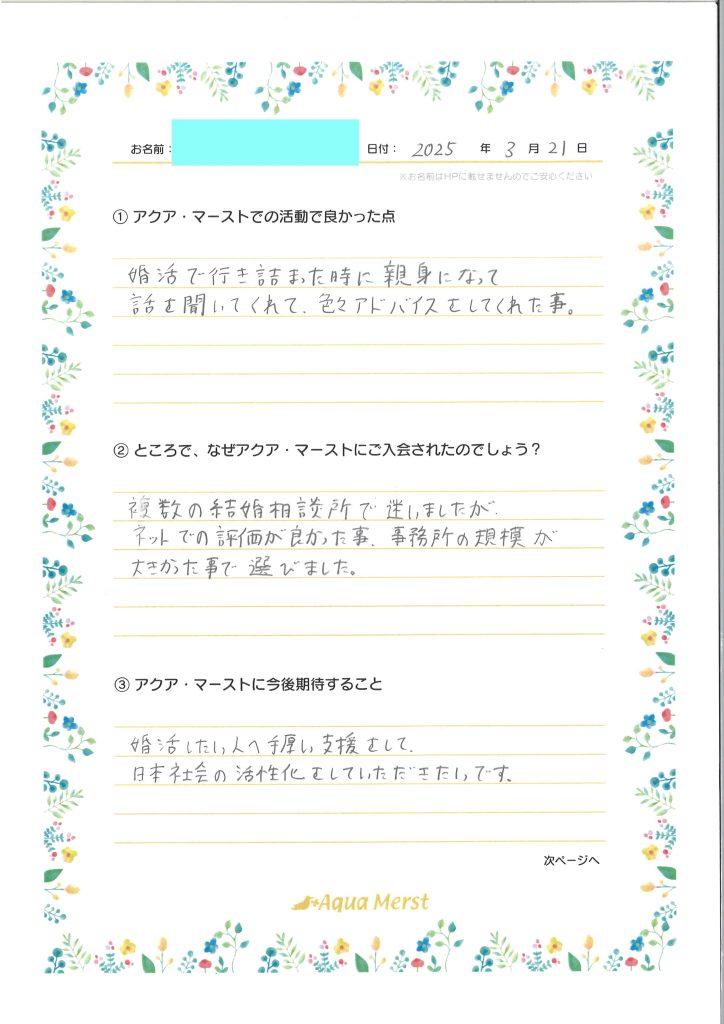 お名前： 日付： 2025 年 3 月 21 日
※お名前はHPに載せませんのでご安心ください
① アクア・マーストでの活動で良かった点
婚活で行き詰まった時に親身になって
話を聞いてくれて、色々アドバイスをしてくれた事。
② ところで、なぜアクア・マーストにご入会されたのでしょう？
複数の結婚相談所で迷いましたが、
ネットでの評価が良かった事、事務所の規模が
大きかった事で選びました。
③ アクア・マーストに今後期待すること
婚活したい人へ手厚い支援をして、
日本社会の活性化をしていただきたいです。
次ページへ
Aqua Merst